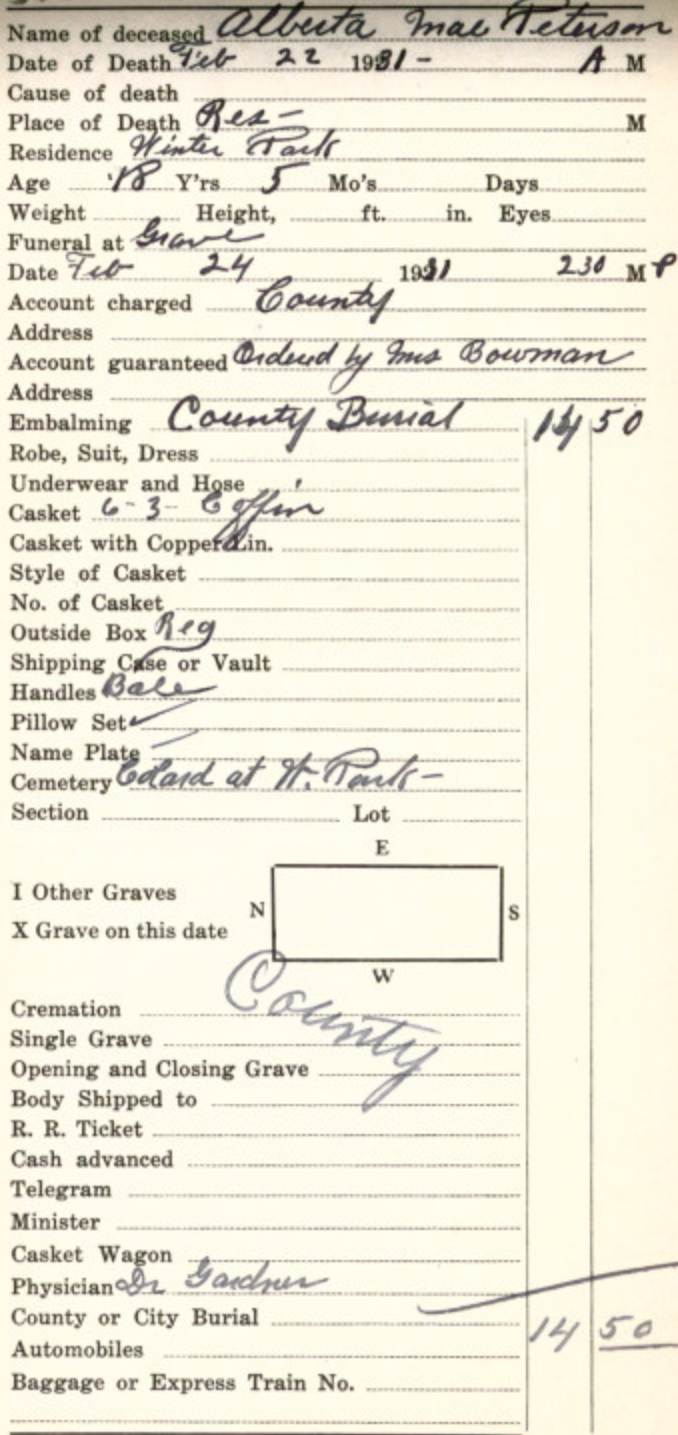 Name of deceased Alberta Mae Peterson
Date of Death Feb 22 1931 - A M
Cause of death
Place of Death Res - M
Residence Winter Park
Age 18 Y'rs 5 Mo's Days
Weight Height, ft. in. Eyes
Funeral at Grave
Date Feb 24 1931 2 30 M P
Account charged County
Address
Account guaranteed Ordered by Mrs Bowman
Address
Embalming County Burial 14 50
Robe, Suit, Dress
Underwear and Hose
Casket 6-3- Coffin
Casket with Copper Lin.
Style of Casket
No. of Casket
Outside Box Reg
Shipping Case or Vault
Handles Bale
Pillow Set
Name Plate
Cemetery at W. Park -
Section Lot
E
I Other Graves
N S
X Grave on this date
W
County
Cremation
Single Grave
Opening and Closing Grave
Body Shipped to
R. R. Ticket
Cash advanced
Telegram
Minister
Casket Wagon
Physician Dr Gardner
County or City Burial 14 50
Automobiles
Baggage or Express Train No.